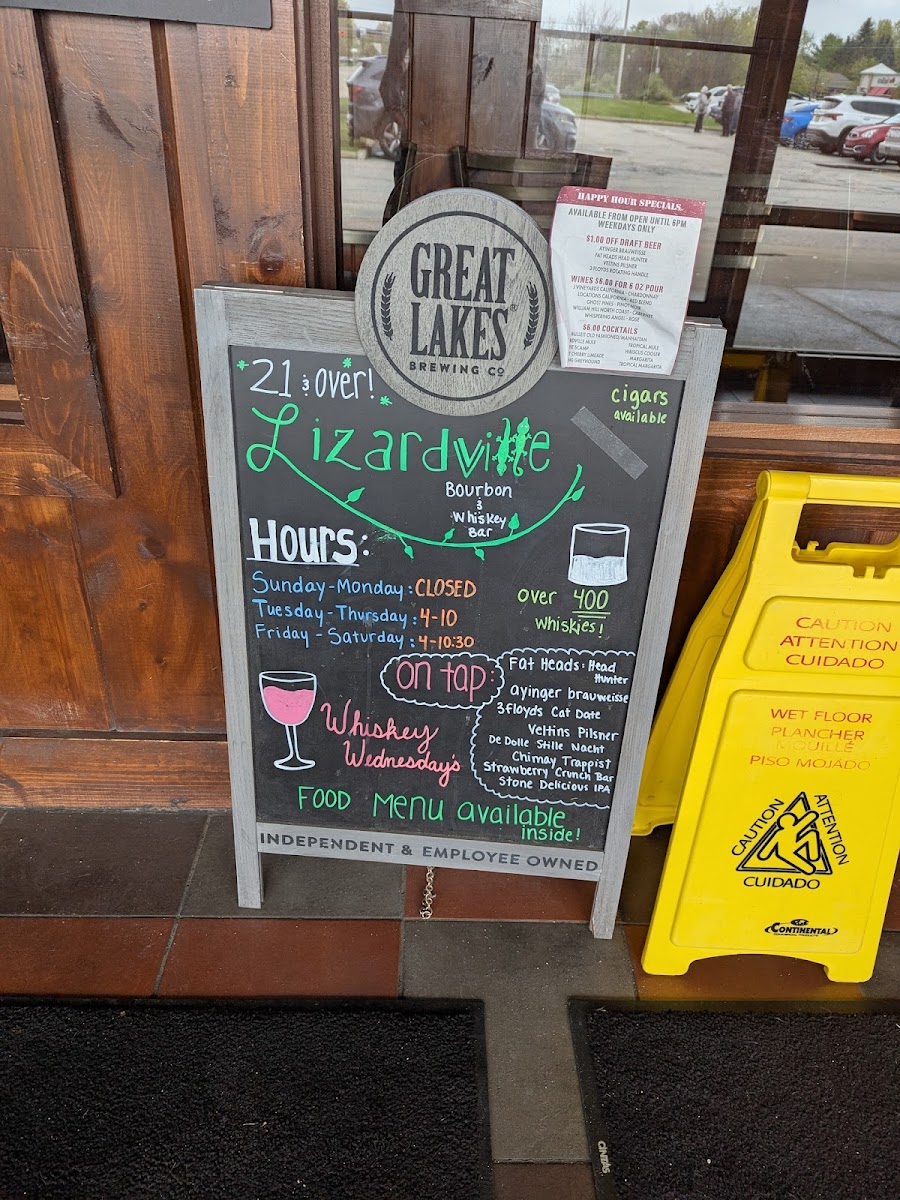 GREAT
LAKES
BREWING CO
HAPPY HOUR SPECIALS
AVAILABLE FROM OPEN UNTIL 6PM
WEEKDAYS ONLY
$1.00 OFF DRAFT BEER
AYINGER BRAUWEISSE
FAT HEADS HEAD HUNTER
VELTINS PILSNER
3 FLOYDS ROTATING HANDLE
WINES $6.00 FOR 6 OZ POUR
J VINEYARDS CALIFORNIA - CHARDONNAY
LOCATIONS CALIFORNIA - RED BLEND
GHOST PINES - PINOT NOIR
WILLIAM HILL NORTH COAST - CABERNET
WHISPERING ANGEL - ROSE
$6.00 COCKTAILS
TROPICAL MULE
HIBISCUS COOLER
MARGARITA
TROPICAL MARGARITA
21 & over!
cigars
available
Lizardville
Bourbon
&
Whiskey
Bar
Hours:
Sunday-Monday: CLOSED
Tuesday-Thursday: 4-10
Friday-Saturday: 4-10:30
over 400
whiskies!
on tap:
Fat Heads: Head
Hunter
ayinger brauweisse
3floyds Cat Date
Veltins Pilsner
De Dolle Stille Nacht
Chimay Trappist
Strawberry Crunch Bar
Stone Delicious IPA
Whiskey
Wednesday's
FOOD Menu available
inside!
INDEPENDENT & EMPLOYEE OWNED
CAUTION
ATTENTION
CUIDADO
WET FLOOR
PLANCHER
MOUILLÉ
PISO MOJADO
CAUTION
ATTENTION
CUIDADO
CONTINENTAL
CINTAS